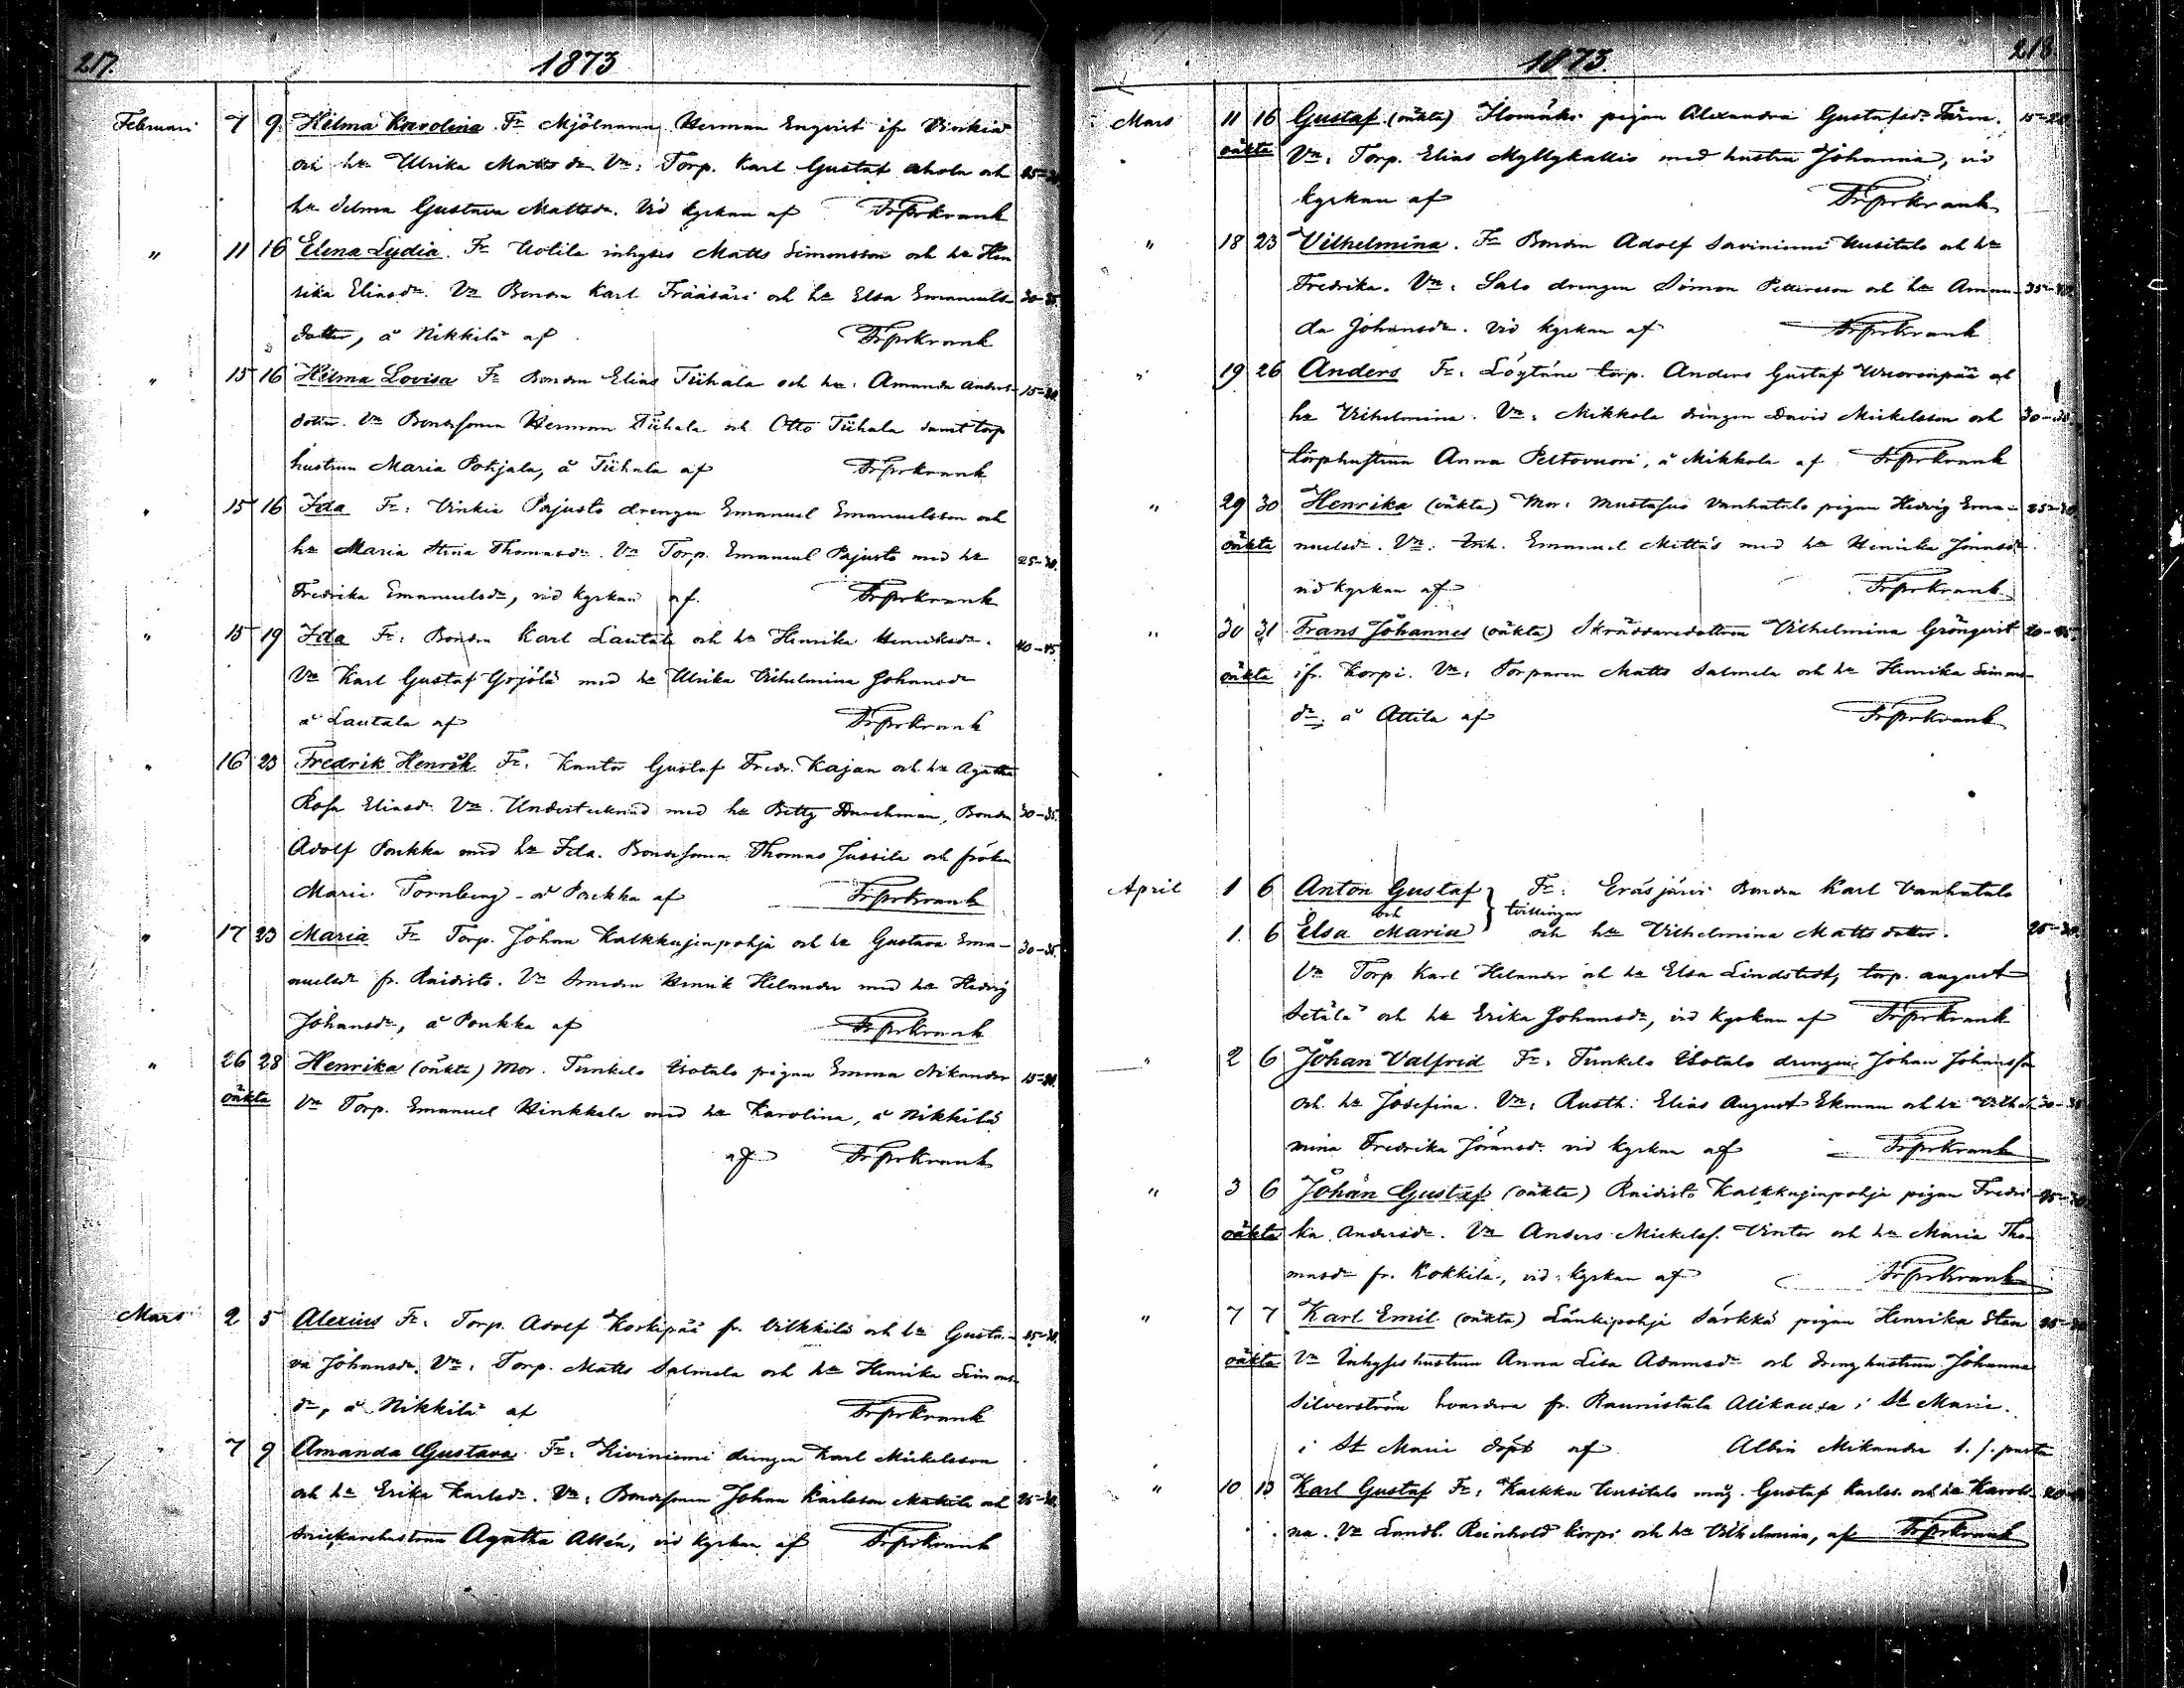 217.
1873
Februari 7 9 Hilma Karolina Fr. Mjölnarn Herman Enqvist ifr Vinkiä
och hu Ulrika Mattsdr. Vn: Torp. Karl Gustaf Ahola och 25-30
hu Selma Gustava Mattsdr. Vid kyrkan af FrPrKrank
" 11 16 Elena Lydia. Fr Uotila inhyses Matts Simonsson och hu Hen
rika Eliasdr. Vn Bonden Karl Frääsäri och hu Elsa Emanuels- 30-35
dotter, å Nikkilä af FrPrKrank
" 15 16 Hilma Lovisa Fr Bonden Elias Tiihala och hu: Amanda Anders- 15-20
dotter. Vn Bondesonen Herman Tiihala och Otto Tiihala samt torp
hustrun Maria Pohjala, å Tiihala af FrPrKrank
" 15 16 Ida Fr: Vinkiä Pajusto drengen Emanuel Emanuelsson och
hu Maria Stina Thomasdr. Vn Torp. Emanuel Pajusto med hu 25-30.
Fredrika Emanuelsdr, vid kyrkan af FrPrKrank
" 15 19 Ida Fr: Bonden Karl Lautala och hu Henrika Henriksdr. 40-45
Vn Karl Gustaf Yrjölä med hu Ulrika Vilhelmina Johansdr
å Lautala af FrPrKrank
" 16 23 Fredrik Henrik Fr: Kantor Gustaf Fredr. Kajan och hu Agatha
Rosa Eliasdr. Vn. Undertecknad med hu Betty, Bonden 30-35.
Adolf Poukka med hu Ida. Bondesonen Thomas Jussila och fröken
Marie Tornberg - å Poukka af FrPrKrank
" 17 23 Maria Fr Torp. Johan Kalkkujenpohja och hu Gustava Ema- 30-35.
nuelsdr fr. Raidisto. Vn Smeden Henrik Helander med hu Hedvig
Johansdr, å Poukka af FrPrKrank
" 26 28 Henrika (oäkta) Mor. Tunkelo Isotalo pigan Emma Nikander 15-20.
oäkta Vn Torp. Emanuel Hinkkala med hu Karolina, å Nikkilä
af FrPrKrank
Mars 2 5 Alexius Fr: Torp. Adolf Korkipää fr. Vilkkilä och hu Gusta- 25-30.
va Johansdr. Vn: Torp. Matts Salmela och hu Henrika Simons-
dr, å Nikkilä af FrPrKrank
7 9 Amanda Gustava Fr: Kiviniemi drengen Karl Mickelsson
och hu Erika Karlsdr. Vn: Bondesonen Johan Karlsson Makila och 25-30.
snickarehustrun Agatha Allén, vid kyrkan af FrPrKrank
1873.
218.
Mars 11 16 Gustaf (oäkta) Ilomäki pigan Alexandra Gustafsdr. Färm. 15-20
oäkta Vn: Torp. Elias Myllykallio med hustru Johanna, vid
kyrkan af FrPrKrank
" 18 23 Vilhelmina. Fr Bonden Adolf Saviniemi Uusitalo och hu
Fredrika. Vn: Salo drengen Simon Pettersson och hu Aman- 35-40
da Johansdr. vid kyrkan af FrPrKrank
" 19 26 Anders Fr: Löytäne torp. Anders Gustaf Vuorenpää och
hu Vilhelmina. Vn: Mikkola drengen David Mickelsson och 30-35.
torphustrun Anna Peltovuori, å Mikkola af FrPrKrank
" 29 30 Henrika (oäkta) Mor: Mustasuo Vanhatalo pigan Hedvig Ema- 25-30
oäkta nuelsdr. Vn: Inh. Emanuel Mittäs med hu Henrika Jönsdr.
vid kyrkan af FrPrKrank
" 30 31 Frans Johannes (oäkta) Skräddaredottren Vilhelmina Grönqvist 20-25.
oäkta ifr. Korpi. Vn: Torparen Matts Salmela och hu Henrika Simons-
dr. å Attila af FrPrKrank
April 1 6 Anton Gustaf Fr: Eräsjärvi Bonden Karl Vanhatalo
och tvillingar
1. 6 Elsa Maria och hu Vilhelmina Mattsdotter. 25-30.
Vn Torp Karl Helander och hu Elsa Lindstedt, torp. August
Setälä och hu Erika Johansdr, vid kyrkan af FrPrKrank
" 2 6 Johan Valfrid Fr: Tunkelo Isotalo drengen Johan Johansson
och hu Josefina. Vn: Rusth. Elias August Ekman och hu Vilhel- 30-35
mina Fredrika Jöransdr. vid kyrkan af FrPrKrank
" 3 6 Johan Gustaf (oäkta) Raidisto Kalkkujenpohja pigan Fredri- 25-30
oäkta ka Andersdr. Vn Anders Mickelss. Vinter och hu Maria Tho-
masdr fr. Kokkila, vid kyrkan af FrPrKrank
" 7 7 Karl Emil (oäkta) Länkipohja Särkkä pigan Henrika Sten 25-30
oäkta Vn Inhyseshustrun Anna Lisa Adamsdr och drenghustrun Johanna
Silverström hvardera fr. Raunistula Alikausa i St Marie.
i St Marie döpt af Albin Mikander
" 10 13 Karl Gustaf Fr: Karkku Uusitalo måg. Gustaf Karlss. och hu Karoli-
na. Vn Landb. Reinhold Korpi och hu Vilhelmina, af FrPrKrank